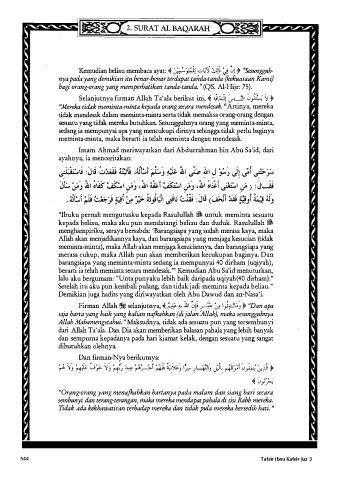 2. SURAT AL BAQARAH
Kemudian beliau membaca ayat: ﴿ إِنَّ فِي ذَٰلِكَ لَآيَاتٍ لِلْمُتَوَسِّمِينَ ﴾ "Sesungguh-
nya pada yang demikian itu benar-benar terdapat tanda-tanda (kekuasaan Kami)
bagi orang-orang yang memperhatikan tanda-tanda." (QS. Al-Hijr: 75).
Selanjutnya firman Allah Ta'ala berikut ini, ﴿ لَا يَسْئَلُونَ النَّاسَ إِلْحَافًا ﴾
"Mereka tidak meminta-minta kepada orang secara mendesak." Artinya, mereka
tidak mendesak dalam meminta-minta serta tidak memaksa orang-orang dengan
sesuatu yang tidak mereka butuhkan. Sesungguhnya orang yang meminta-minta,
sedang ia mempunyai apa yang mencukupi dirinya sehingga tidak perlu baginya
meminta-minta, maka berarti ia telah meminta dengan mendesak.
Imam Ahmad meriwayatkan dari Abdurrahman bin Abu Sa'id, dari
ayahnya, ia menceritakan:
سَرَّحَتْنِي أُمِّي إِلَى رَسُوْلِ اللهِ صَلَّى اللهُ عَلَيْهِ وَسَلَّمَ أَسْأَلُهُ، فَأَتَيْتُهُ فَقَعَدْتُ قَالَ: فَاسْتَقْبَلَنِي
فَقَالَ: وَمَنِ اسْتَغْنَى أَغْنَاهُ اللهُ، وَمَنِ اسْتَعَفَّ أَعَفَّهُ اللهُ، وَمَنِ اسْتَكَفَّ كَفَاهُ اللهُ وَمَنْ سَأَلَ
وَلَهُ قِيْمَةُ أُوقِيَّةٍ فَقَدْ أَلْحَفَ، قَالَ: فَقُلْتُ نَاقَتِي الْيَاقُوتَةُ خَيْرٌ مِنْ أُوقِيَّةٍ فَرَجَعْتُ فَلَمْ أَسْأَلْهُ.
"Ibuku pernah mengutusku kepada Rasulullah ﷺ untuk meminta sesuatu
kepada beliau, maka aku pun mendatangi beliau dan duduk. Rasulullah ﷺ
menghampiriku, seraya bersabda: 'Barangsiapa yang sudah merasa kaya, maka
Allah akan menjadikannya kaya, dan barangsiapa yang menjaga kesucian (tidak
meminta-minta), maka Allah akan menjaga kesuciannya, dan barangsiapa yang
merasa cukup, maka Allah pun akan memberikan kecukupan baginya. Dan
barangsiapa yang meminta-minta sedang ia mempunyai 40 dirham (uqiyah),
berarti ia telah meminta secara mendesak.'" Kemudian Abu Sa'id menuturkan,
lalu aku bergumam: "Unta punyaku lebih baik daripada uqiyah(40 dirham)."
Setelah itu aku pun kembali pulang, dan tidak jadi meminta kepada beliau."
Demikian juga hadits yang diriwayatkan oleh Abu Dawud dan an-Nasa'i.
Firman Allah selanjutnya, ﴿ وَمَا تُنفِقُوا مِنْ خَيْرٍ فَإِنَّ اللَّهَ بِهِ عَلِيمٌ ﴾ "Dan apa
saja harta yang baik yang kalian nafkahkan (di jalan Allah), maka sesungguhnya
Allah Mahamengetahui." Maksudnya, tidak ada sesuatu pun yang tersembunyi
dari Allah Ta'ala. Dan Dia akan memberikan balasan pahala yang lebih banyak
dan sempurna kepadanya pada hari kiamat kelak, dengan sesuatu yang sangat
dibutuhkan olehnya.
Dan firman-Nya berikutnya:
﴿ الَّذِينَ يُنفِقُونَ أَمْوَالَهُم بِالَّيْلِ وَالنَّهَارِ سِرًّا وَعَلَانِيَةً فَلَهُمْ أَجْرُهُمْ عِندَ رَبِّهِمْ وَلَا خَوْفٌ عَلَيْهِمْ وَلَا هُمْ
يَحْزَنُونَ ﴾
"Orang-orang yang menafkahkan hartanya pada malam dan siang hari secara
sembunyi dan terang-terangan, maka mereka mendapat pahala di sisi Rabb mereka.
Tidak ada kekhawatiran terhadap mereka dan tidak pula mereka bersedih hati."
544
Tafsir Ibnu Katsir Juz 3